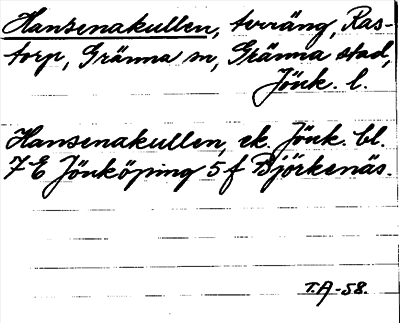 Hansenakullen, torräng, Ras-
torp, Gränna sn, Gränna stad,
Jönk. l.
Hansenakullen, ek. Jönk. bl.
7 E Jönköping 5 f Björkenäs.
T.A-58.